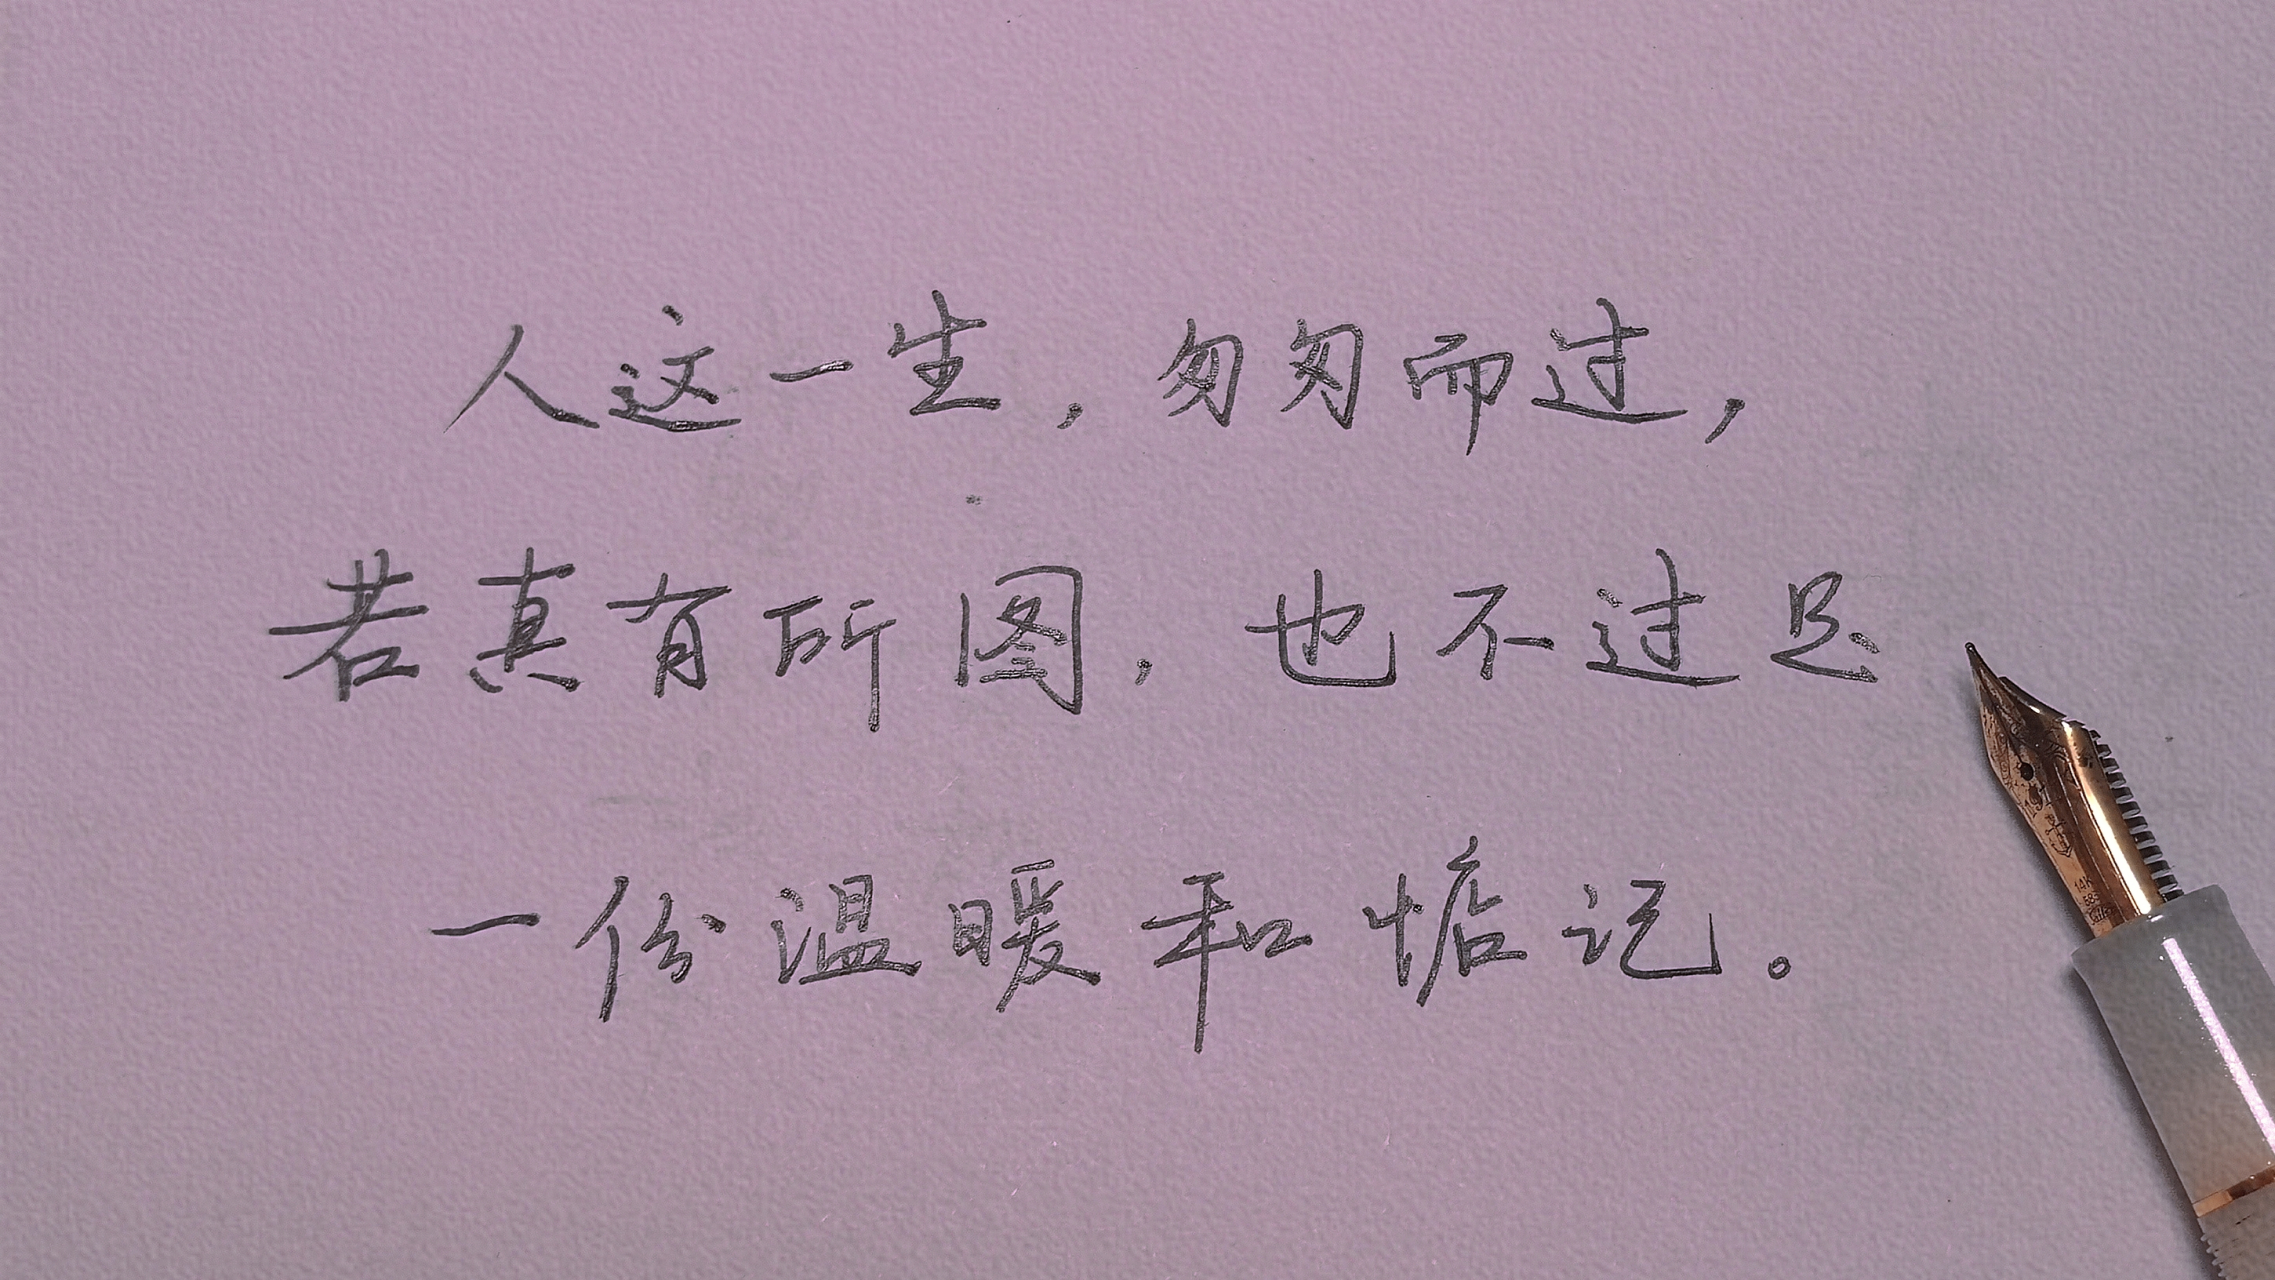 人这一生，匆匆而过，
若真有所图，也不过是
一份温暖和惦记。
14K
585